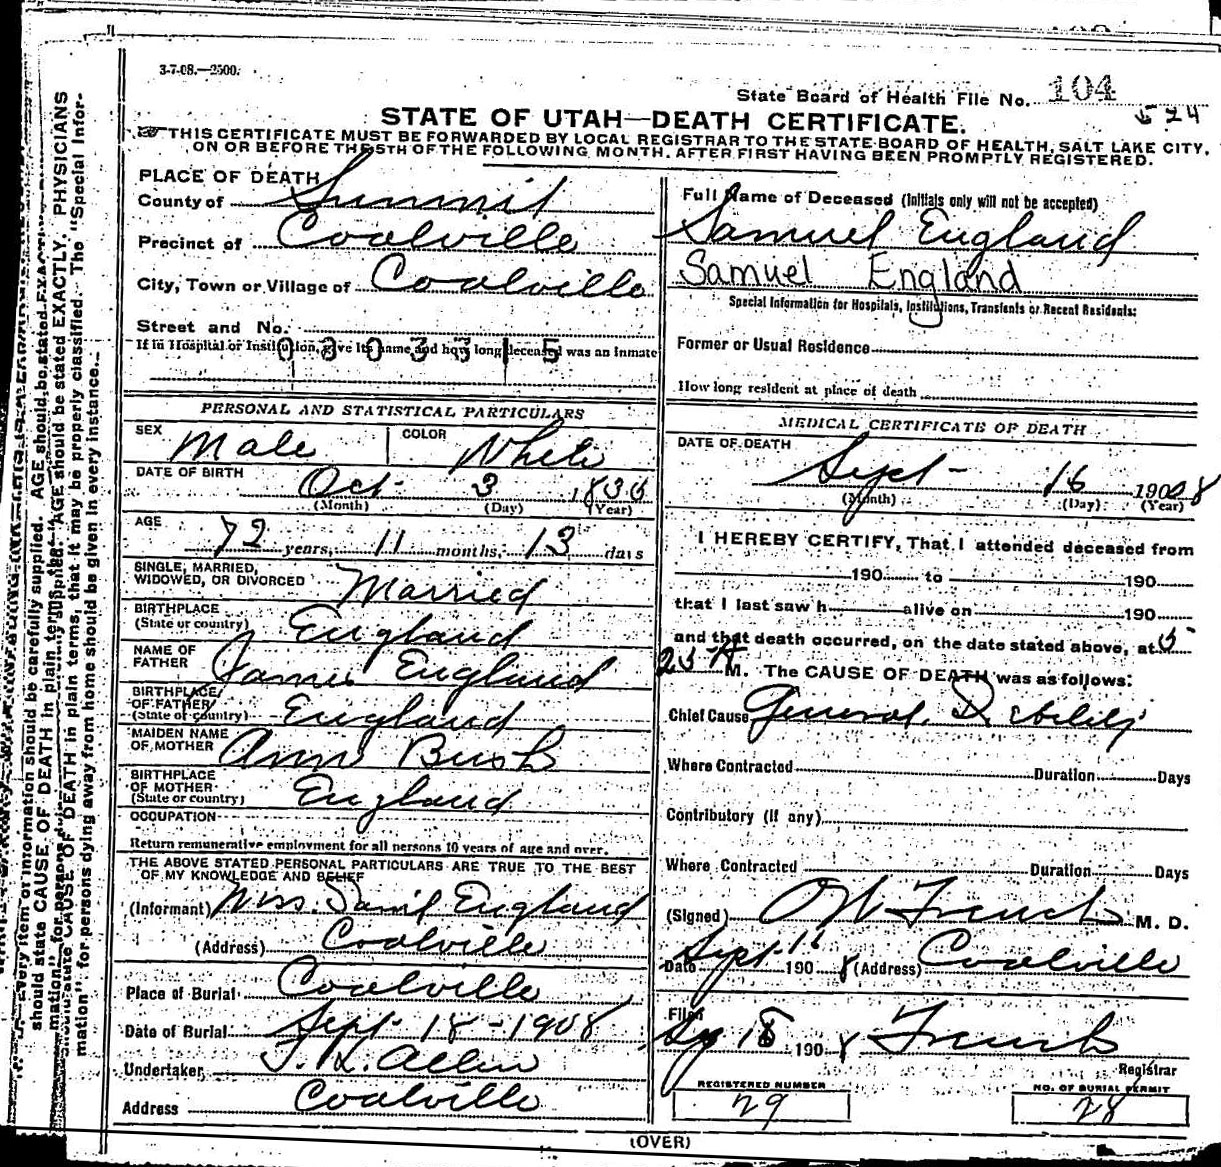 3-7-08.—2500.
State Board of Health File No. 104
524
STATE OF UTAH—DEATH CERTIFICATE.
THIS CERTIFICATE MUST BE FORWARDED BY LOCAL REGISTRAR TO THE STATE BOARD OF HEALTH, SALT LAKE CITY,
ON OR BEFORE THE 5TH OF THE FOLLOWING MONTH, AFTER FIRST HAVING BEEN PROMPTLY REGISTERED.
PLACE OF DEATH
County of Summit
Precinct of Coalville
City, Town or Village of Coalville
Street and No.
If in Hospital or Institution, give its name and how long deceased was an inmate
0303315
PERSONAL AND STATISTICAL PARTICULARS
SEX Male COLOR White
DATE OF BIRTH
Oct 3 1835
(Month) (Day) (Year)
AGE
72 years, 11 months, 13 days
SINGLE, MARRIED,
WIDOWED, OR DIVORCED Married
BIRTHPLACE
(State or country) England
NAME OF
FATHER James England
BIRTHPLACE
OF FATHER
(State or country) England
MAIDEN NAME
OF MOTHER Ann Bush
BIRTHPLACE
OF MOTHER
(State or country) England
OCCUPATION
Return remunerative employment for all persons 10 years of age and over.
THE ABOVE STATED PERSONAL PARTICULARS ARE TRUE TO THE BEST
OF MY KNOWLEDGE AND BELIEF
(Informant) England
(Address) Coalville
Place of Burial Coalville
Date of Burial Sept 18-1908
Undertaker J. L. Allen
Address Coalville
Full Name of Deceased (Initials only will not be accepted)
Samuel England
Samuel England
Special Information for Hospitals, Institutions, Transients or Recent Residents:
Former or Usual Residence
How long resident at place of death
MEDICAL CERTIFICATE OF DEATH
DATE OF DEATH
Sept 16 1908
(Month) (Day) (Year)
I HEREBY CERTIFY, That I attended deceased from
190 to 190
that I last saw h alive on 190
and that death occurred, on the date stated above, at 5
25 A M. The CAUSE OF DEATH was as follows:
Chief Cause General Debility
Where Contracted Duration Days
Contributory (if any)
Where Contracted Duration Days
(Signed) French M. D.
Date Sept 16 1908 (Address) Coalville
Filed
18 1908 French
Registrar
REGISTERED NUMBER
29
NO. OF BURIAL PERMIT
28
(OVER)
Every item of information should be carefully supplied. AGE should be stated EXACTLY. PHYSICIANS
should state CAUSE OF DEATH in plain terms, that it may be properly classified. The "Special Infor-
mation" for persons dying away from home should be given in every instance.